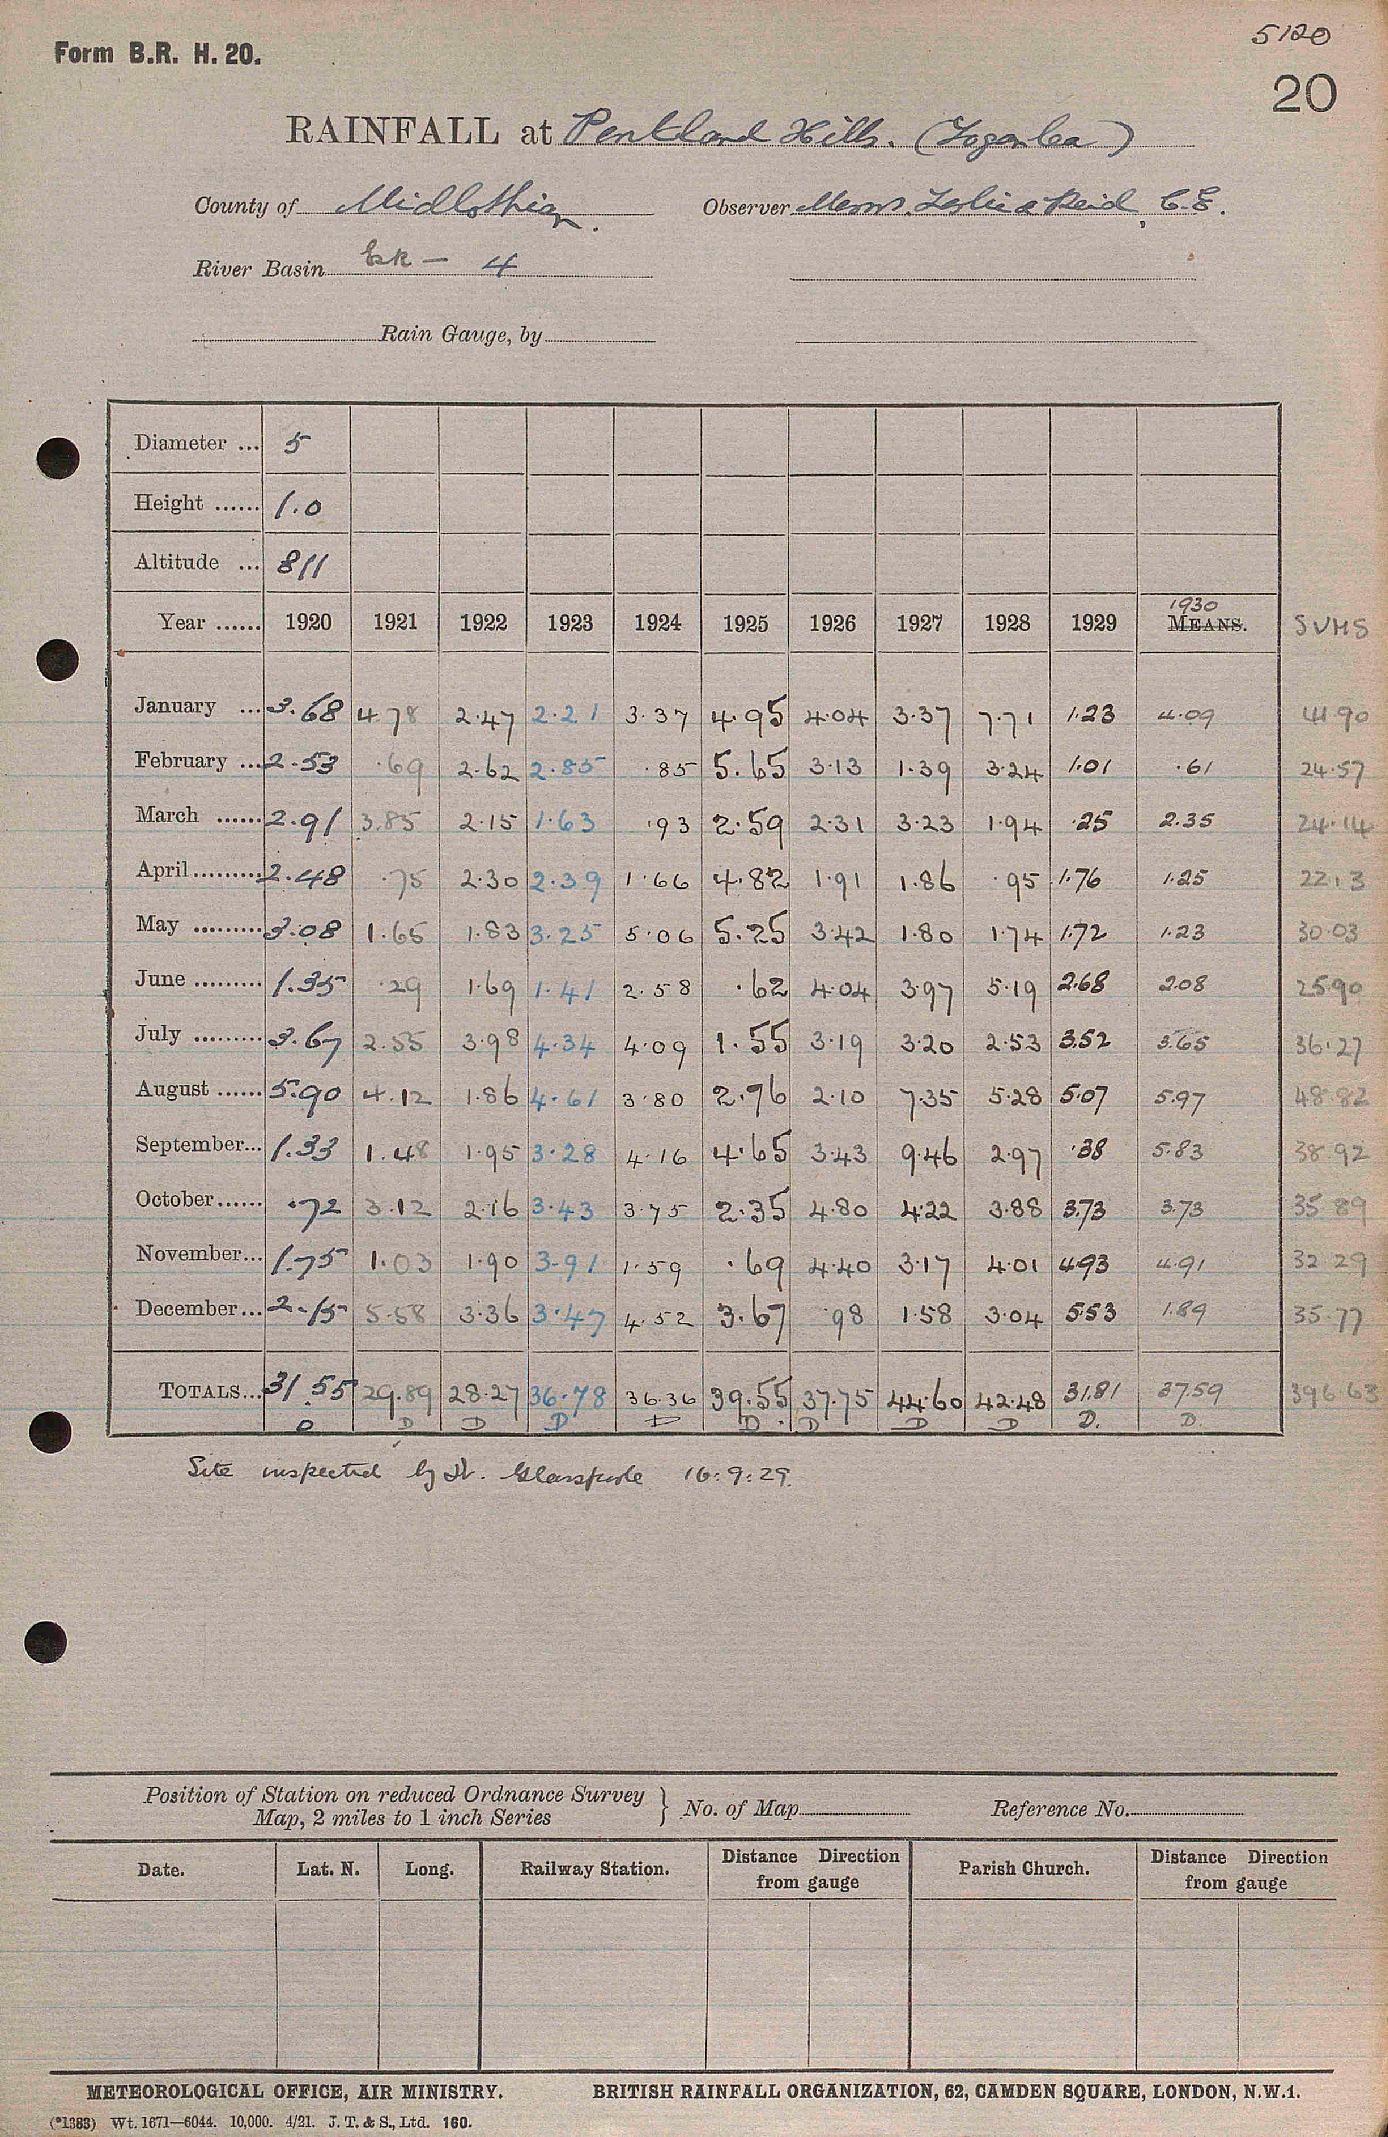 5120
Form B.R. H. 20.
20
RAINFALL at Pentland Hills. (Loganlea)
County of Midlothian. Observer Messrs. Leslie & Reid, C.E.
River Basin Esk — 4
Rain Gauge, by
Diameter ... 5
Height ...... 1.0
Altitude ... 811
Year ...... 1920 1921 1922 1923 1924 1925 1926 1927 1928 1929 1930 MEANS. SUMS
January ... 3.68 4.78 2.47 2.21 3.37 4.95 4.04 3.37 7.71 1.23 4.09 41.90
February ... 2.53 .69 2.62 2.85 .85 5.65 3.13 1.39 3.24 1.01 .61 24.57
March ...... 2.91 3.85 2.15 1.63 .93 2.59 2.31 3.23 1.94 .25 2.35 24.14
April ......... 2.48 .75 2.30 2.39 1.66 4.82 1.91 1.86 .95 1.76 1.25 22.13
May ......... 3.08 1.65 1.83 3.25 5.06 5.25 3.42 1.80 1.74 1.72 1.23 30.03
June ......... 1.35 .29 1.69 1.41 2.58 .62 4.04 3.97 5.19 2.68 2.08 25.90
July ......... 3.67 2.55 3.98 4.34 4.09 1.55 3.19 3.20 2.53 3.52 3.65 36.27
August ...... 5.90 4.12 1.86 4.61 3.80 2.76 2.10 7.35 5.28 5.07 5.97 48.82
September... 1.33 1.48 1.95 3.28 4.16 4.65 3.43 9.46 2.97 .38 5.83 38.92
October...... .72 3.12 2.16 3.43 3.75 2.35 4.80 4.22 3.88 3.73 3.73 35.89
November... 1.75 1.03 1.90 3.91 1.59 .69 4.40 3.17 4.01 4.93 4.91 32.29
December... 2.15 5.58 3.36 3.47 4.52 3.67 .98 1.58 3.04 5.53 1.89 35.77
TOTALS... 31.55 29.89 28.27 36.78 36.36 39.55 37.75 44.60 42.48 31.81 37.59 396.63
D D D D D D D D D D. D.
Site inspected by Dr. Glasspoole 16:9:29.
Position of Station on reduced Ordnance Survey Map, 2 miles to 1 inch Series } No. of Map Reference No.
Date. Lat. N. Long. Railway Station. Distance Direction from gauge Parish Church. Distance Direction from gauge
METEOROLOGICAL OFFICE, AIR MINISTRY. BRITISH RAINFALL ORGANIZATION, 62, CAMDEN SQUARE, LONDON, N.W.1.
(*1383) Wt. 1671—6044. 10,000. 4/21. J. T. & S., Ltd. 160.